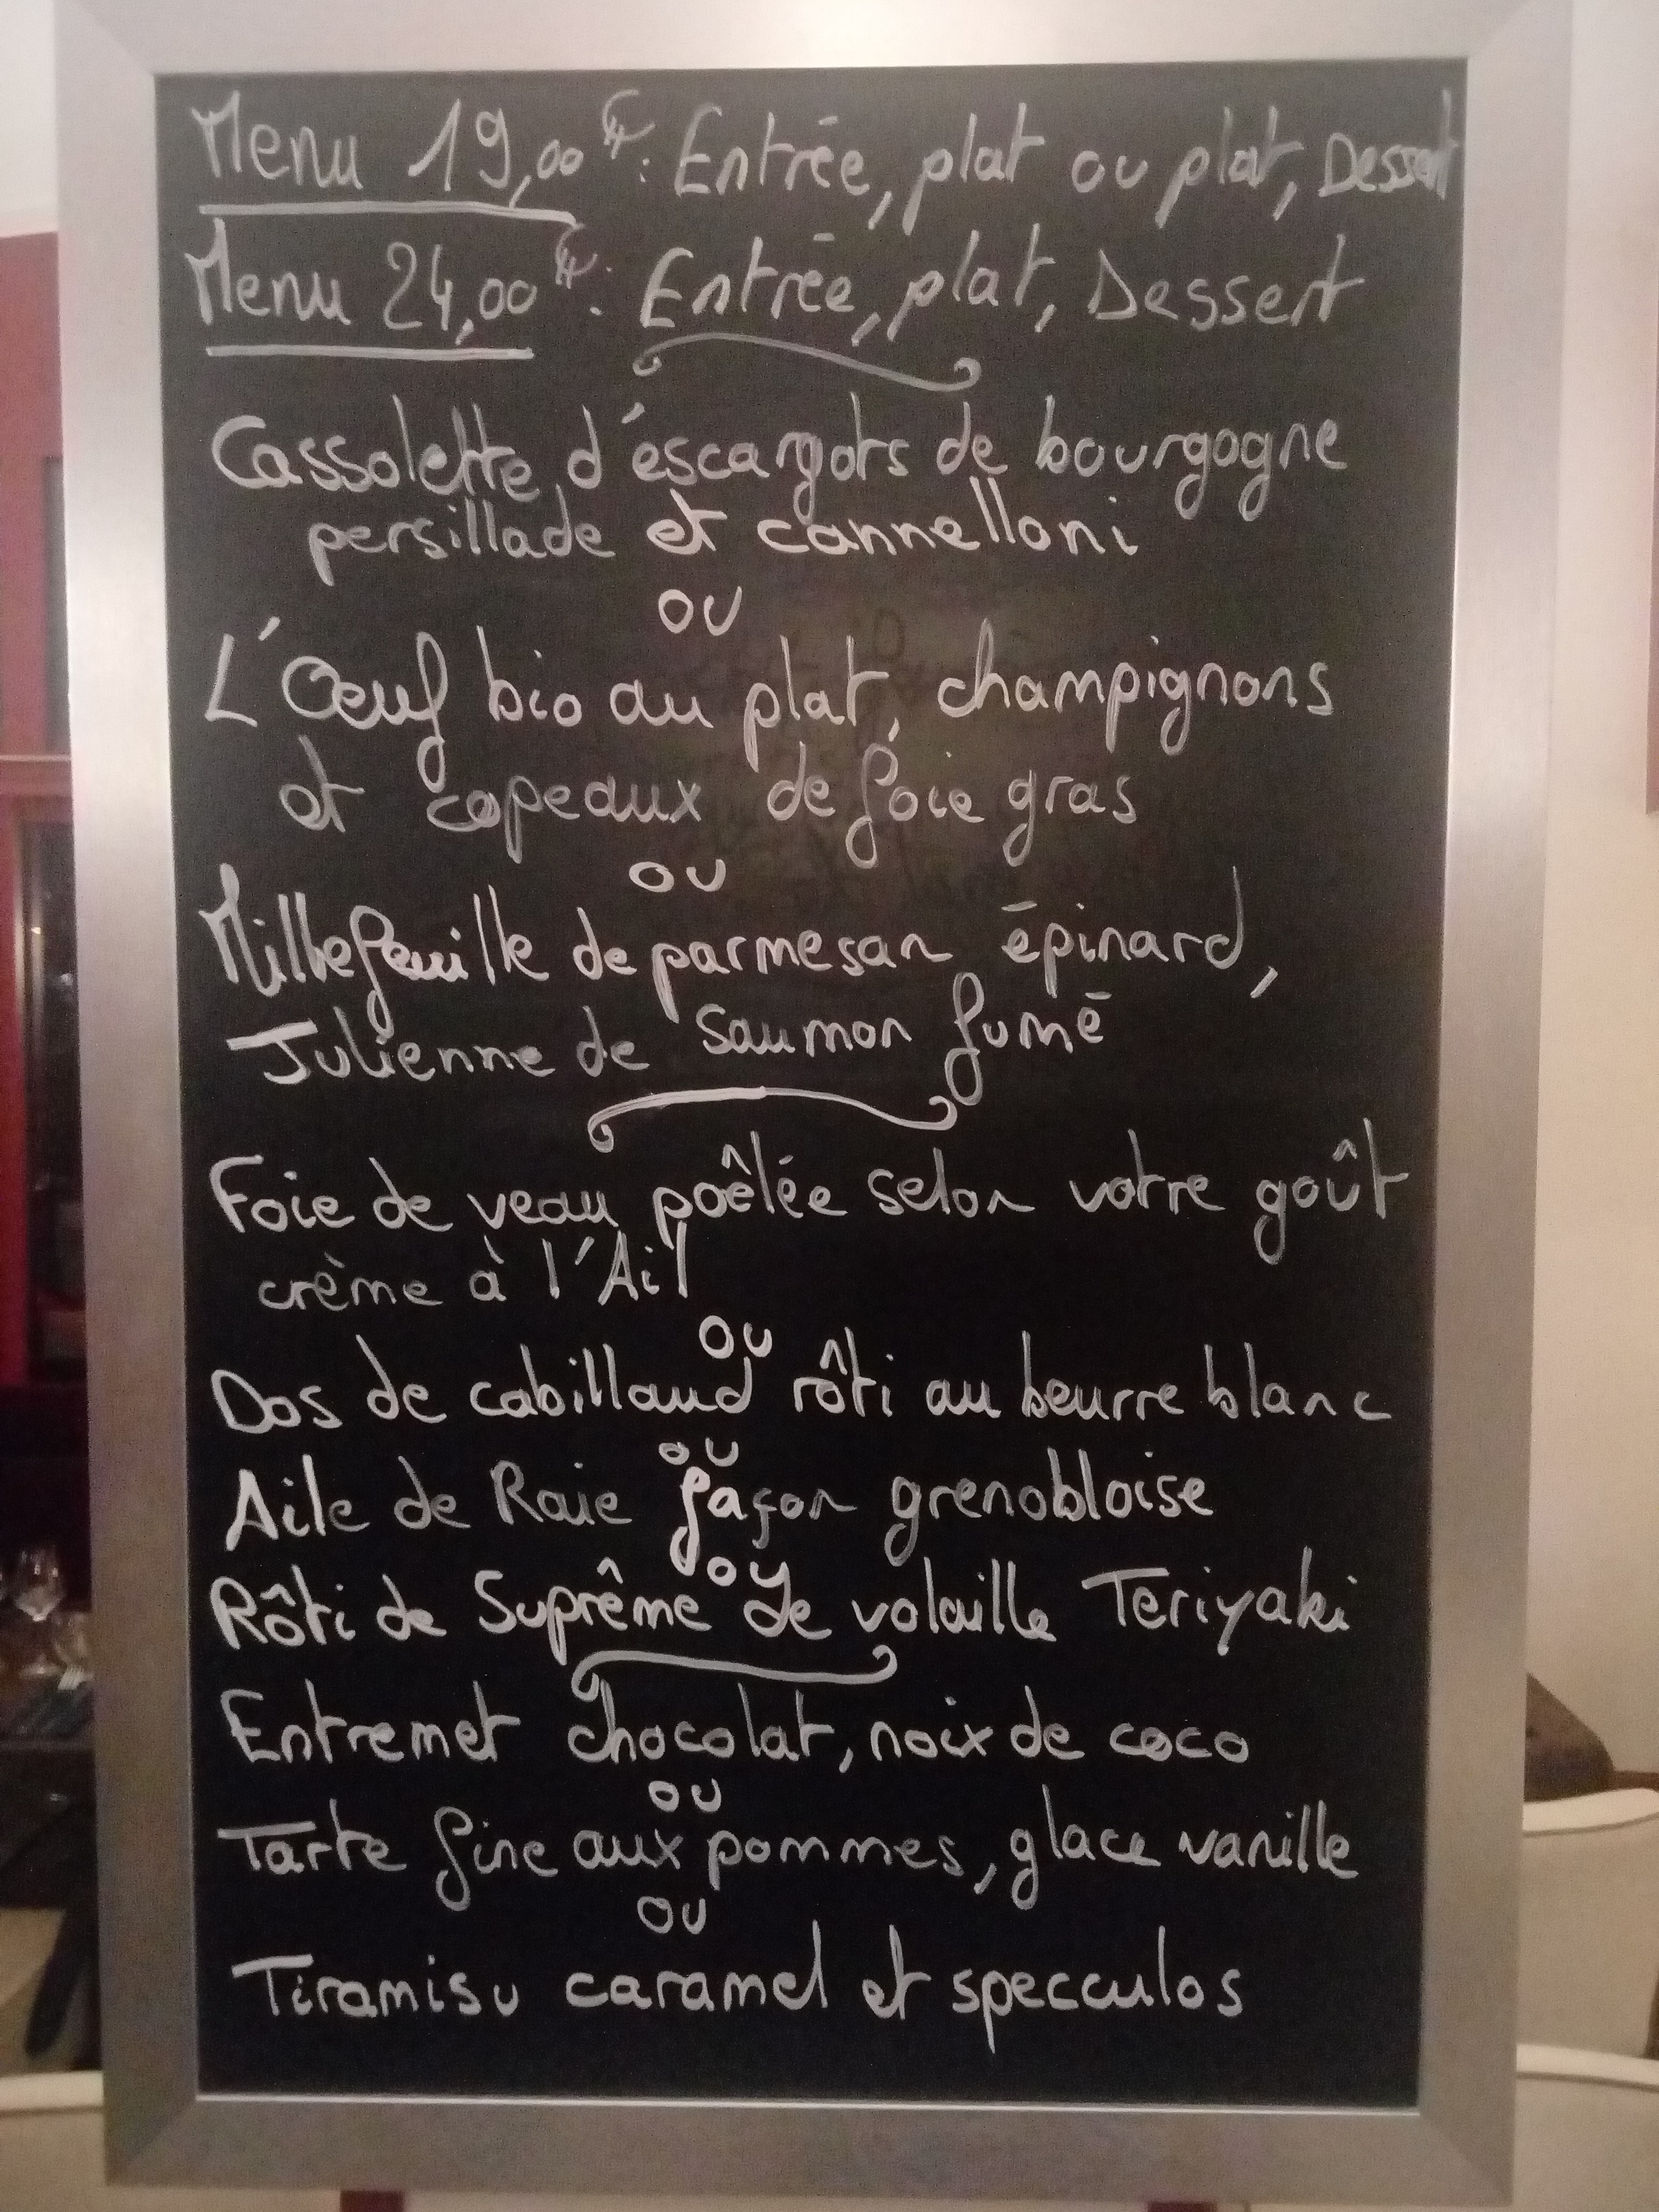 Menu 19,00€: Entrée, plat ou plat, Dessert
Menu 24,00€: Entrée, plat, Dessert
Cassolette d'escargots de bourgogne
persillade et cannelloni
ou
L'Œuf bio au plat, champignons
et copeaux de foie gras
ou
Millefeuille de parmesan épinard,
Julienne de saumon fumé
Foie de veau poêlée selon votre goût
crème à l'Ail
ou
Dos de cabillaud rôti au beurre blanc
ou
Aile de Raie façon grenobloise
ou
Rôti de Suprême de volaille Teriyaki
Entremet chocolat, noix de coco
ou
Tarte fine aux pommes, glace vanille
ou
Tiramisu caramel et specculos